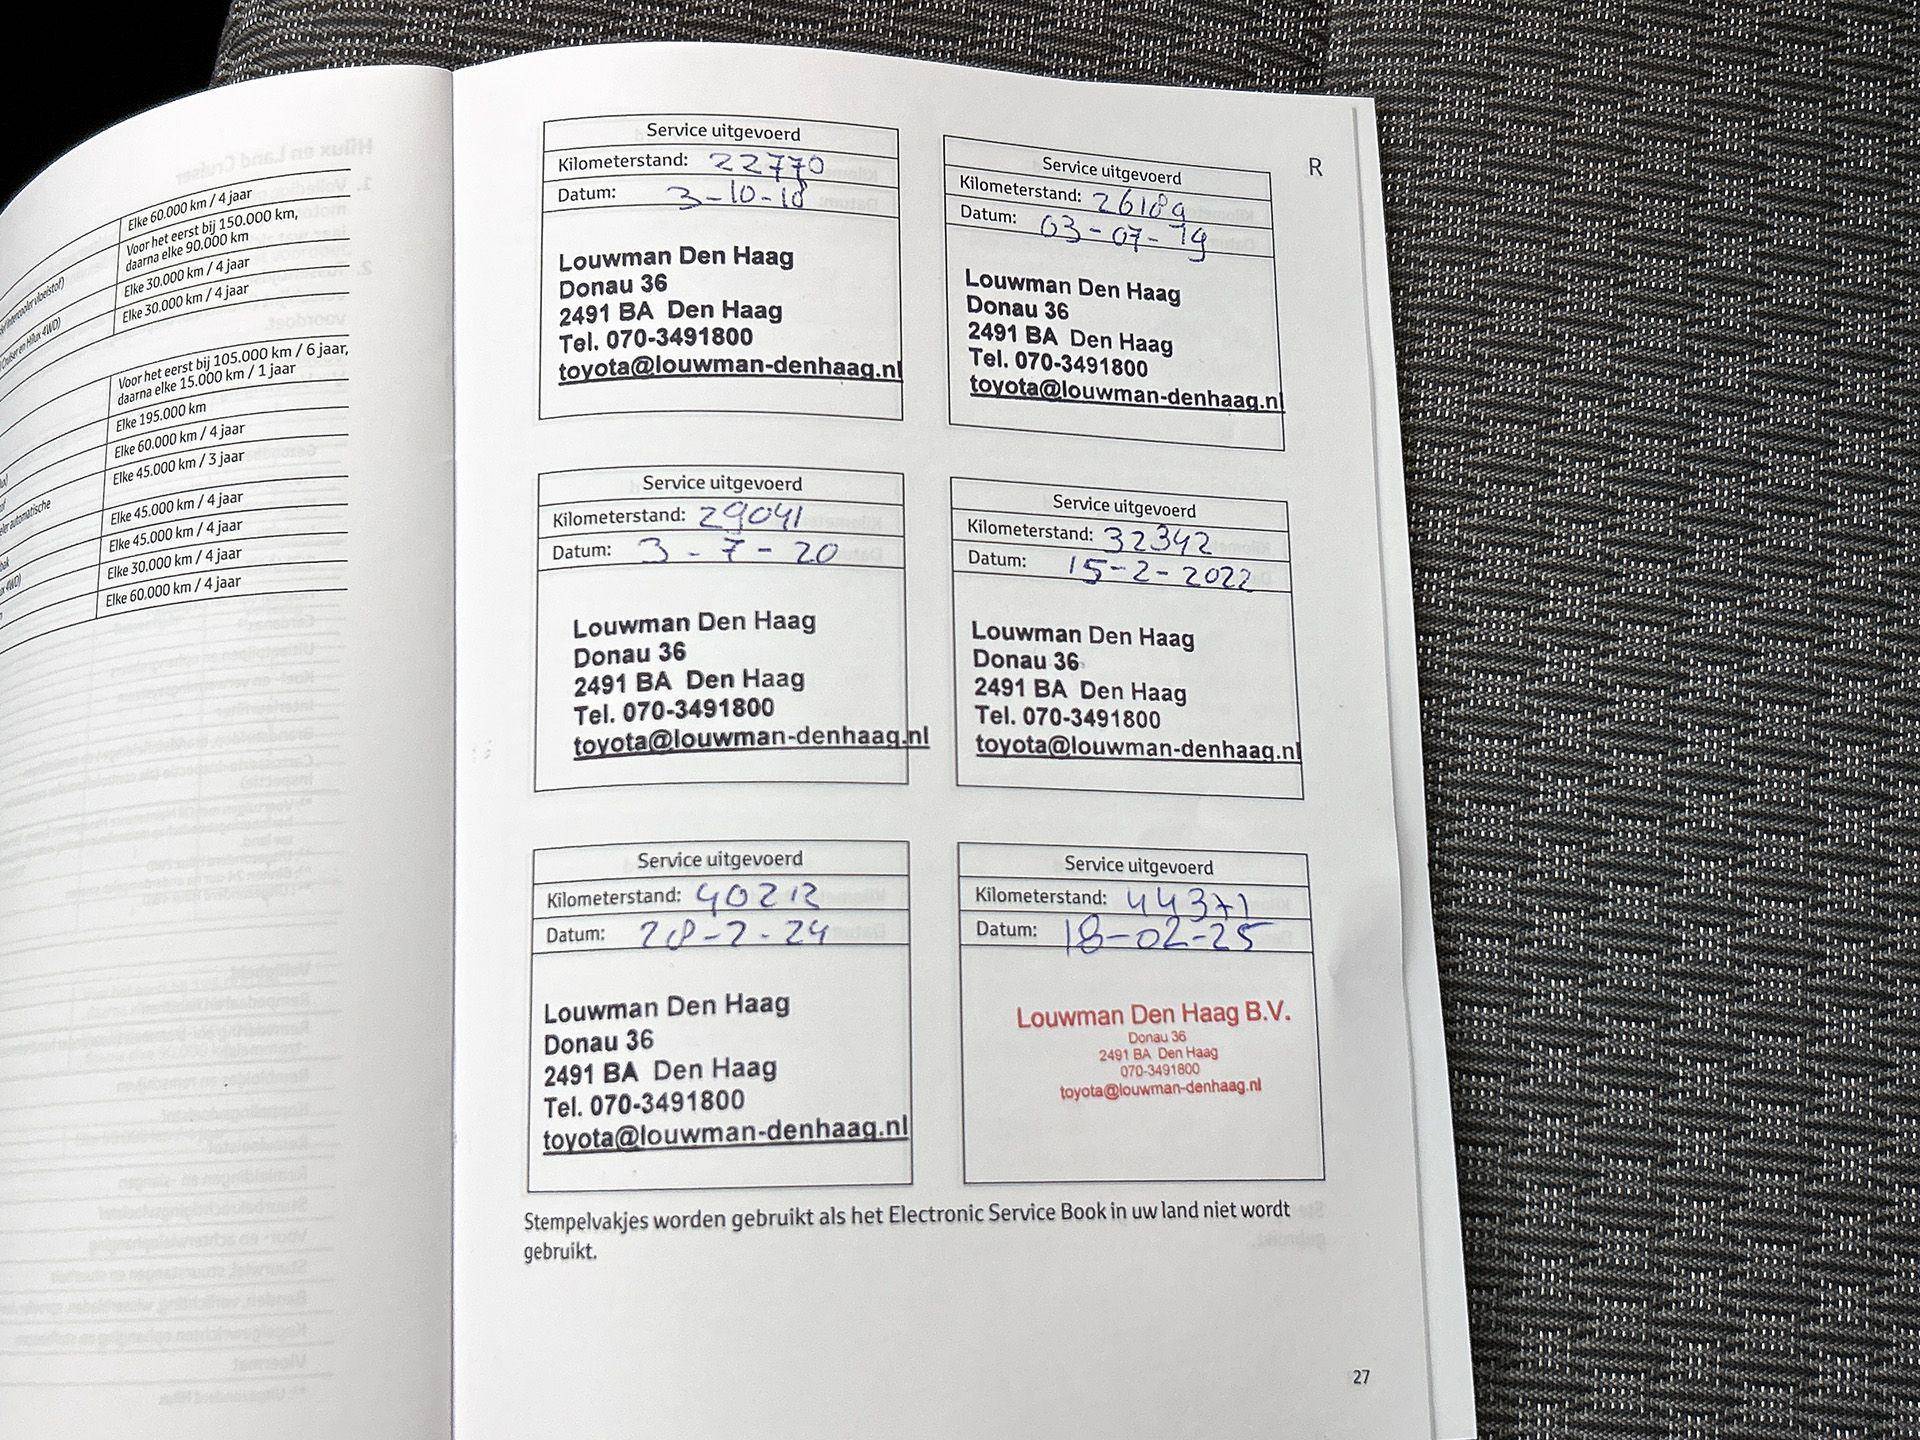 Elke 60.000 km / 4 jaar
Voor het eerst bij 150.000 km,
daarna elke 90.000 km
Elke 30.000 km / 4 jaar
Elke 30.000 km / 4 jaar
Voor het eerst bij 105.000 km / 6 jaar,
daarna elke 15.000 km / 1 jaar
Elke 195.000 km
Elke 60.000 km / 4 jaar
Elke 45.000 km / 3 jaar
Elke 45.000 km / 4 jaar
Elke 45.000 km / 4 jaar
Elke 30.000 km / 4 jaar
Elke 60.000 km / 4 jaar
R
Service uitgevoerd
Kilometerstand: 22770
Datum: 3-10-18
Louwman Den Haag
Donau 36
2491 BA Den Haag
Tel. 070-3491800
toyota@louwman-denhaag.nl
Service uitgevoerd
Kilometerstand: 26189
Datum: 03-07-19
Louwman Den Haag
Donau 36
2491 BA Den Haag
Tel. 070-3491800
toyota@louwman-denhaag.nl
Service uitgevoerd
Kilometerstand: 29041
Datum: 3-7-20
Louwman Den Haag
Donau 36
2491 BA Den Haag
Tel. 070-3491800
toyota@louwman-denhaag.nl
Service uitgevoerd
Kilometerstand: 32342
Datum: 15-2-2022
Louwman Den Haag
Donau 36
2491 BA Den Haag
Tel. 070-3491800
toyota@louwman-denhaag.nl
Service uitgevoerd
Kilometerstand: 40212
Datum: 28-2-24
Louwman Den Haag
Donau 36
2491 BA Den Haag
Tel. 070-3491800
toyota@louwman-denhaag.nl
Service uitgevoerd
Kilometerstand: 44371
Datum: 18-02-25
Louwman Den Haag B.V.
Donau 36
2491 BA Den Haag
070-3491800
toyota@louwman-denhaag.nl
Stempelvakjes worden gebruikt als het Electronic Service Book in uw land niet wordt
gebruikt.
27